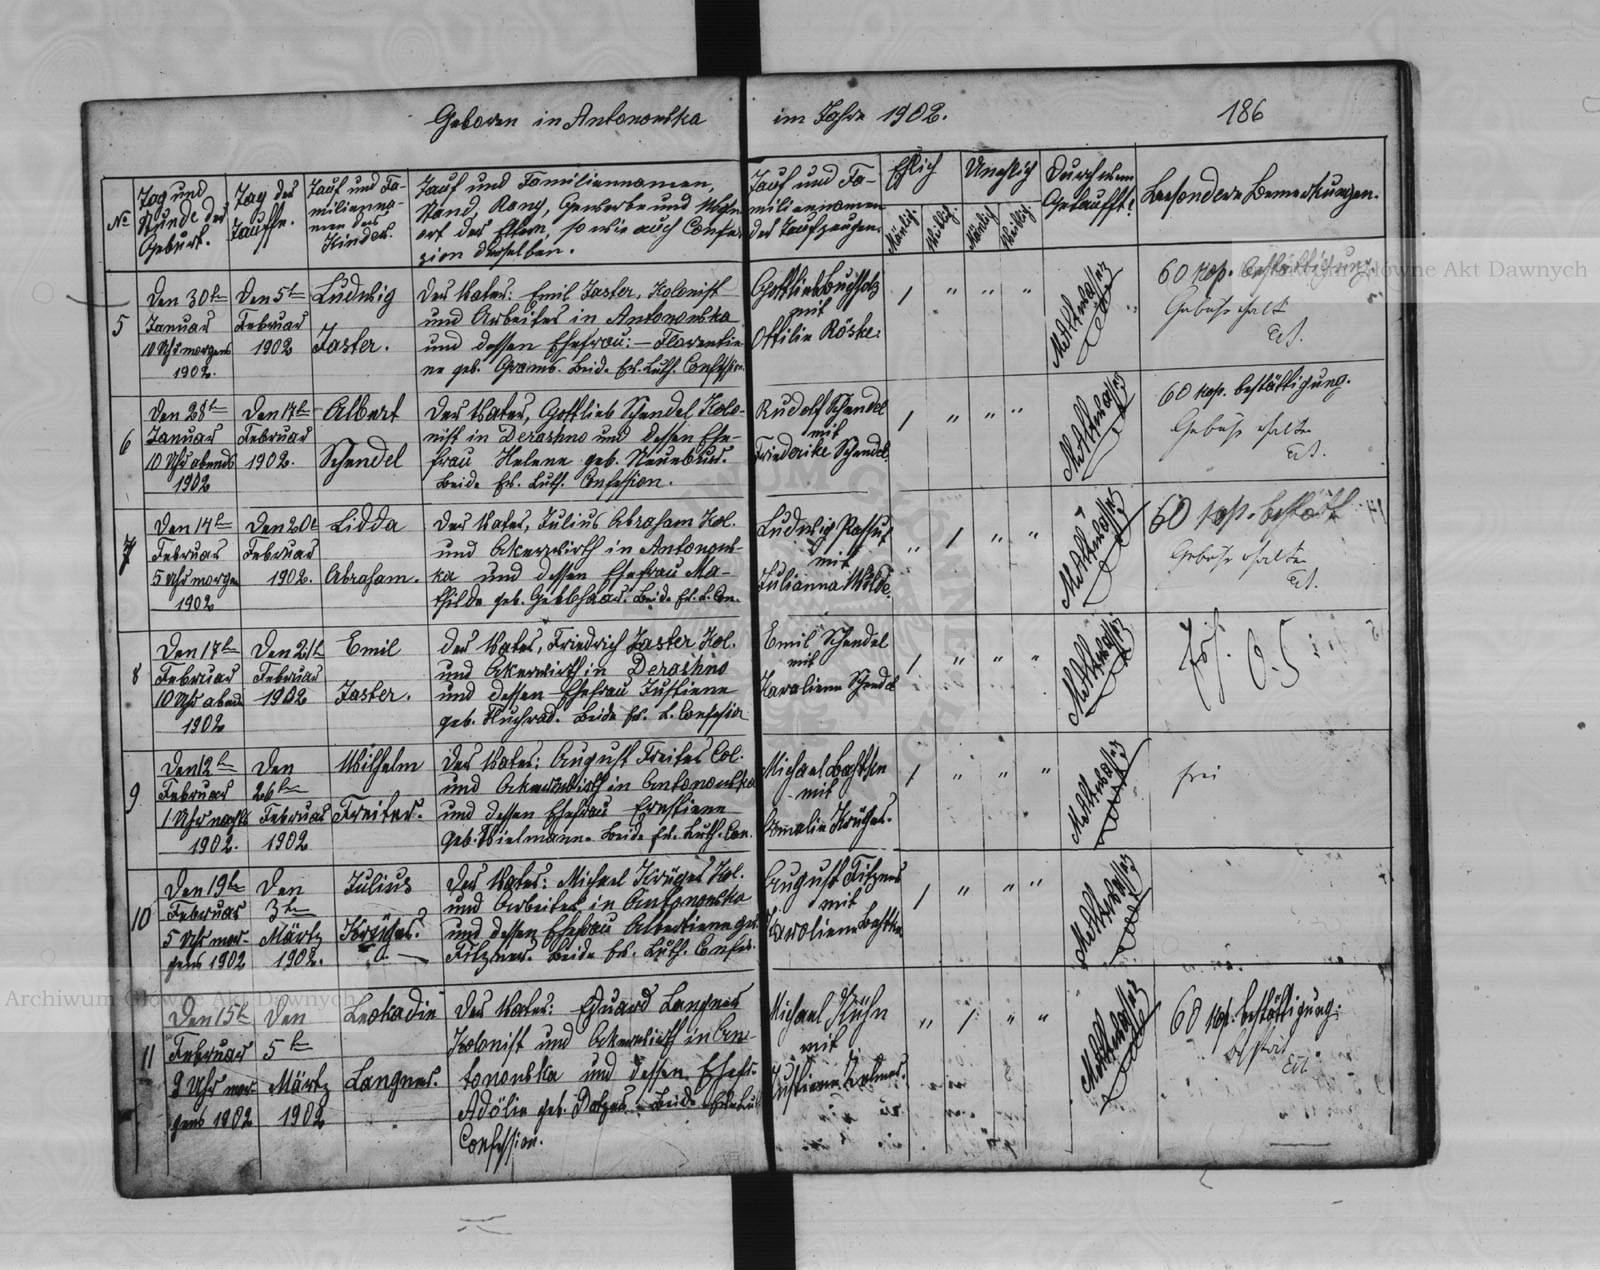 Geboren in Antonowka im Jahre 1902. 186
№
Tag und
Stunde der
Geburt.
Tag der
Tauffe.
Tauf und Fa-
milienna-
men des
Kindes.
Tauf und Familiennamen,
Stand, Rang, Gewerbe und Wohn
ort der Eltern, so wie auch Confes
zion derselben.
Tauf und Fa-
miliennamen
der Taufzeugen.
Ehlich
Unehlich
Mänlig
Weiblig
Mänlig
Weiblig
Durch wem
Getaufft?
Besondere Bemerkungen.
5
Den 30ten
Januar
10 Uhr morgens
1902.
Den 5ten
Februar
1902
Ludwig
Jaster.
Der Vater: Emil Jaster, Kolonist
und Arbeiter in Antonowka
und dessen Ehefrau: Florentie
ne geb. Grams. Beide Ev. Luth. Confession.
Gottlieb Buchholz
mit
Ottilie Röske.
60 kop. bestättigung.
Gebühr halte
6
Den 28ten
Januar
10 Uhr abends
1902
Den 17ten
Februar
1902.
Albert
Schendel
Der Vater, Gottlieb Schendel Kolo-
nist in Derashno und dessen Ehe-
frau Helene geb.
Beide Ev. Luth. Confession.
Rudolf Schendel
mit
Friederike Schendel.
60 kop. bestättigung.
Gebühr halte
7
Den 14ten
Februar
5 Uhr morgen
1902
Den 20t
Februar
1902.
Lidda
Abraham.
Der Vater, Julius Abraham Kol.
und Akerwirth in Antonow-
ka und dessen Ehefrau Ma-
thilde geb. Beide Ev. L. Con.
Ludwig
mit
Julianna Wilde.
60 kop. bestätt
Gebühr halte
8
Den 17ten
Februar
10 Uhr abend
1902
Den 21t
Februar
1902
Emil
Jaster.
Der Vater, Friedrich Jaster Kol.
und Akerwirth in Derashno
und dessen Ehefrau Justiene
geb. Beide Ev. L. Confesion
Emil Schendel
mit
Karoliene Schendel
9
Den 12ten
Februar
1 Uhr nachts
1902.
Den
26ten
Februar
1902
Wilhelm
Freiter.
Der Vater: August Freiter Col.
und Akerwirth in Antonowka
und dessen Ehefrau Ernstiene
geb. Thielmann. Beide Ev. Luth. Con.
Michael
mit
Amalie Krüger.
frei
10
Den 19ten
Februar
5 Uhr mor-
gens 1902
Den
3ten
Märtz
1902.
Julius
Krüger.
Der Vater: Michael Krüger Kol.
und Arbeiter in Antonowka
und dessen Ehefrau Albertiene geb.
Filzner. Beide Ev. Luth. Confes.
August Filzner
mit
Karoliene
11
Den 15t
Februar
9 Uhr mor-
gens 1902
Den
5ten
Märtz
1902
Leokadie
Langner.
Der Vater: Eduard Langner
Kolonist und Akerwirth in An-
tonowka und dessen Ehefr.
Adölie geb. Beide Ev. Lut
Confession.
Michael Kühn
mit
Justiene
60 kop. bestättigung.
Archiwum Główne Akt Dawnych
Archiwum Główne Akt Dawnych